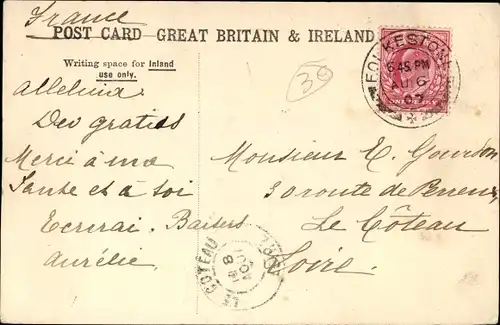 France
POST CARD GREAT BRITAIN & IRELAND
Writing space for Inland
use only.
36
FOLKESTONE
6.45 PM
AU 6
07
alleluia
Deo gratias
Merci à ma
Tante et à toi
Ecrirai. Baisers
Aurélie
Monsieur E. Gourdon
30 route de
Le Côteau
Loire
COTEAU
LOIRE
8